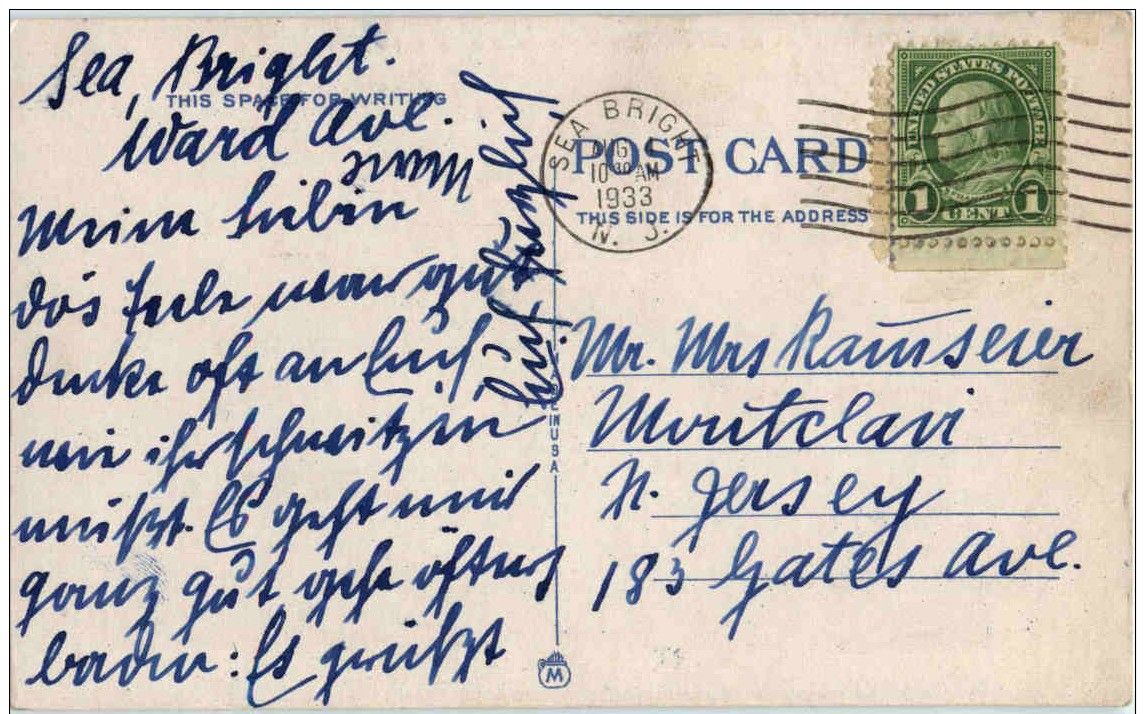 Sea, Bright.
THIS SPACE FOR WRITING
Ward Ave.
Meine Lieben
das Teele war gut
denke oft an Euch
wie ihr schwitzen
müßt. Es geht mir
ganz gut gehe öfters
baden: Es grüßt
Euch herzlich
SEA BRIGHT
AUG
10 30 AM
1933
N. J.
POST CARD
THIS SIDE IS FOR THE ADDRESS
UNITED STATES POSTAGE
1 CENT 1
Mr. Mrs Ramseier
Montclair
N. Jersey
183 Gates Ave.
E IN USA
M